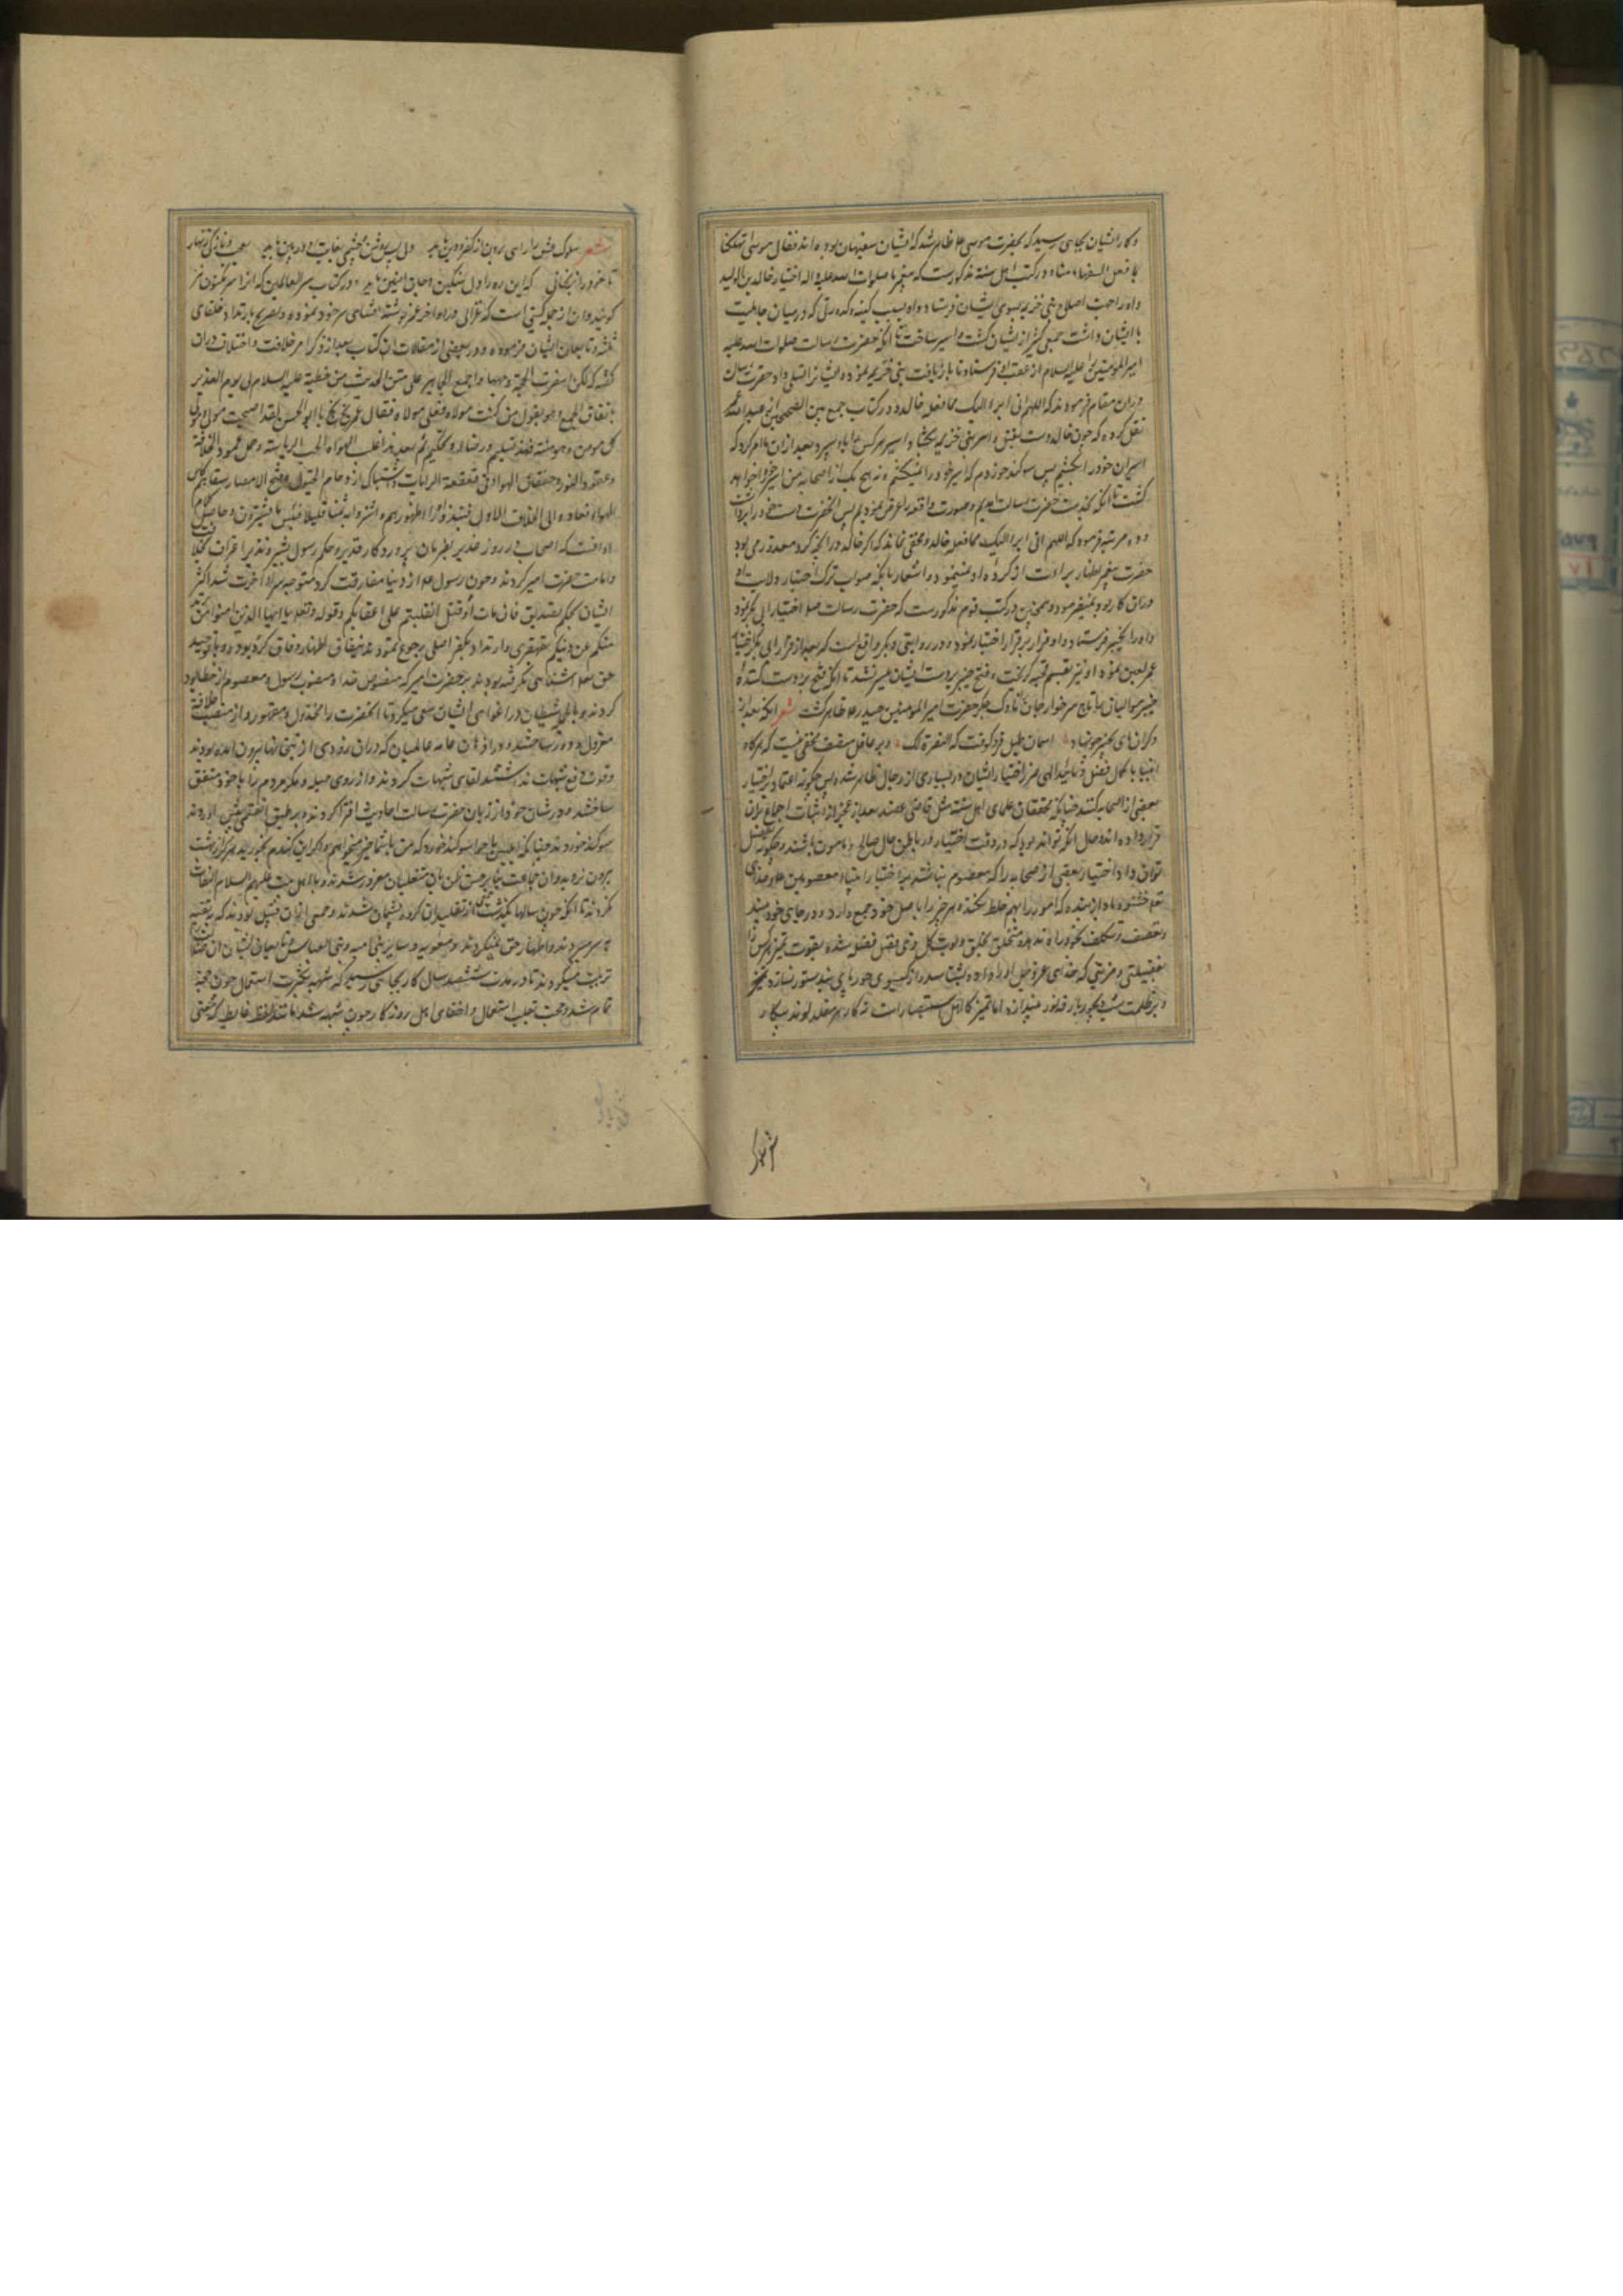 و کار ایشان بجای رسید که بحضرت موسی ع ظاهر شد که ایشان سفیهان بوده اند فقال موسی اتهلکنا
بما فعل السفهاء منا و در کتب اهل سنة مذکورست که پیغمبر ما صلوات الله علیه و اله اختیار خالد بن الولید
و او را جهت اصلاح بنی خزیمه بسوی ایشان فرستاد و او بسبب کینه و کدورتی که در میان جاهلیت
با ایشان داشت جمعی کثیر از ایشان کشت و اسیر ساخت تا انکه حضرت رسالت صلوات الله علیه
امیر المومنین علیه السلام از عقب او فرستاد تا بازیافت بنی خزیمه نموده ایشانرا تسلی داد و حضرت رسالت
در ان مقام فرمودند که اللهم انی ابرء الیک مما فعل خالد و در کتاب جمع بین الصحیحین عبد الله عمر
نقل کرده که چون خالد دست بقتل و اسر بنی خزیمه بکشاد اسیر هر کس را باو سپرد بعد از ان ما را امر کرد که
اسیران خود را بکشیم پس سوکند خوردم که اسیر خود را نمیکشم و نه هیچ یک از اصحاب من اسیر خود را خواهد
کشت تا انکه بخدمت حضرت رسالت امدیم و صورت واقعه را عرض نمودیم پس انحضرت دست خود را برداشت
و دو مرتبه فرمود که اللهم انی ابرء الیک مما فعل خالد و مخفی نماند که اکر خالد در انچه کرد معذور می بود
حضرت پیغمبر اظهار براءت از کرده او نمینمود و اشعار بانکه صواب ترک اختیار ولایت او
در ان کار بود نمیفرمود و همچنین در کتب قوم مذکورست که حضرت رسالت صلعم اختیار ابی بکر نمود
و او را بخیبر فرستاد و او فرار بر قرار اختیار نمود و در روایتی دیکر واقع است که بعد از فرار ابی بکر اختیار
عمر لعین نموده او نیز بقسم قحبه کریخت و فتح خیبر بر دست ایشان میسر نشد تا انکه فتح بر دست کننده
خیبر موالیان با تاج سر خوارجیان ناوک جکر حضرت امیر المومنین حیدر ع ظاهر کشت شعر انکه بعد از
دکران های بخیبر چو نهاد اسمان طبل فرو کوفت که النصرة لک و بر عاقل منصف مخفی نیست که هرکاه
انبیا با کمال فضل و تایید الهی ضرر اختیار ایشان در بسیاری از رجال ظاهر شده پس چکونه اعتماد بر اختیار
بعضی از صحابه کنند چنانکه محققان علمای اهل سنت مثل قاضی عضد بعد از عجز از اثبات اجماع بران
قرار داده اند و حال انکه تواند بود که در وقت اختیار در باطن حال صالح و مامون باشند و چکونه تفضیل
توان داد اختیار بعضی از صحابه را که معصوم نباشند بر اختیار انبیاء معصومین ع و خدای
تع خشنود باد از بنده که امور را بهم خلط نکند و هر چیز را باصل خود جمع دارد و در جای خود بیند
و تعسف و تکلف بخود راه ندهد
فضیلتی و مزیتی که خدای عز و جل او را داده بشناسد
و بر ظلمت شب دیجور باز قد نور میندازد اما تمیز کار اهل استبصار است نه کار هر مقلد لوند بیکار
شعر
شعر سلوک فنش را راهی برون از کفر و دین باید دلی پس روشن و چشمی بغایت دوربین باید
تا خود را نرنجانی که این ره را دل سنکین و جان اهنین باید و در کتاب سر العالمین که انرا سر مکنون نیز
کویند و ان از جمله کتبی است که غزالی در اواخر عمر نوشته افشای سر خود نموده و تصریح بارتداد خلفای
ثلثه و تابعان ایشان فرموده و در بعضی از مقالات ان کتاب بعد از ذکر امر خلافت و اختلاف دران
کفته که لکن اسفرت الحجة وجهها و اجمع الجماهیر علی متن الحدیث من خطبته علیه السلام فی یوم الغدیر
باتفاق الجمیع و هو یقول من کنت مولاه فعلی مولاه فقال عمر بخ بخ یا ابو الحسن لقد اصبحت مولای و مولی
کل مومن و مومنة فهذا تسلیم و رضاء و تحکیم ثم بعد هذا غلب الهواء لحب الریاسة و حمل عمود الخلافة
و عقود البنود و خفقان الهواء فی قعقعة الرایات و اشتباک ازدحام الخیول و فتح الامصار سقاهم کاس
الهواء فعادوا الی الخلاف الاول فنبذوه وراء ظهورهم و اشتروا به ثمنا قلیلا فبئس ما یشترون و حاصل کلام
او انست که اصحاب در روز غدیر بفرمان پروردکار قدیر و حکم رسول بشیر و نذیر اعتراف بخلافت
و امامت حضرت امیر کردند و چون رسول ع از دنیا مفارقت کرد متوجه سرای اخرت شد اکثر
ایشان بحکم تصدیق فان مات او قتل انقلبتم علی اعقابکم و قوله تعالی یا ایها الذین امنوا من یرتد
منکم عن دینکم بقهقری و ارتداد بکفر اصلی رجوع نمود
حق تعا اشنایی نکرفته بودند بر حضرت امیر که منصوص خدا و منصوب رسول و معصوم از خطا بود
کردند و بالجمله شیطان در اغوای ایشان سعی میکرد تا انحضرت را مخذول و مقهور و از منصب خلافت
معزول و دور ساختند و در اذهان عامه عالمیان که دران بزودی از بتخانها بیرون امده بودند
و قوت دفع شبهات نداشتند القای شبهات کردند و از روی حیله و مکر مردم را با خود متفق
ساختند و در شان خود از زبان حضرت رسالت احادیث افترا کردند و بر طبق
سوکند خوردند چنانکه ابلیس با حوا سوکند خورد که من با شما خیر میخواهم و اکر این کندم بخورید هرکز از بهشت
بیرون نروید و ان جماعت بنابر حسن ظن بان متغلبان مغرور شدند و باهل بیت علیهم السلام التفات
نکردند تا انکه چون سالها بکذشت بعضی از تقلید ان کروه پشیمان شدند و جمعی ازان قبیل بودند که بتقیه
بسر میبردند و اظهار حق نمیکردند و معویه و سایر بنی امیه و بنی العباس و تابعان ایشان
تربیت میکردند تا در مدت ششصد سال کار بجای رسید که شبهه بکثرت استعمال چون حجت
تمام شد و حجت بقلت استعمال و اخفای اهل روزکار چون شبهه شد